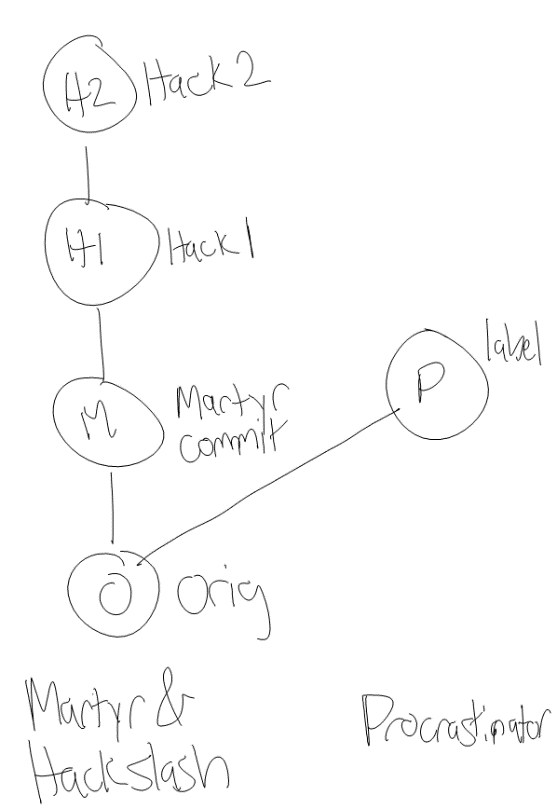 H2 Hack2
H1 Hack1
label
P
M Martyr
commit
O Orig
Martyr &
Hackslash
Procrastinator